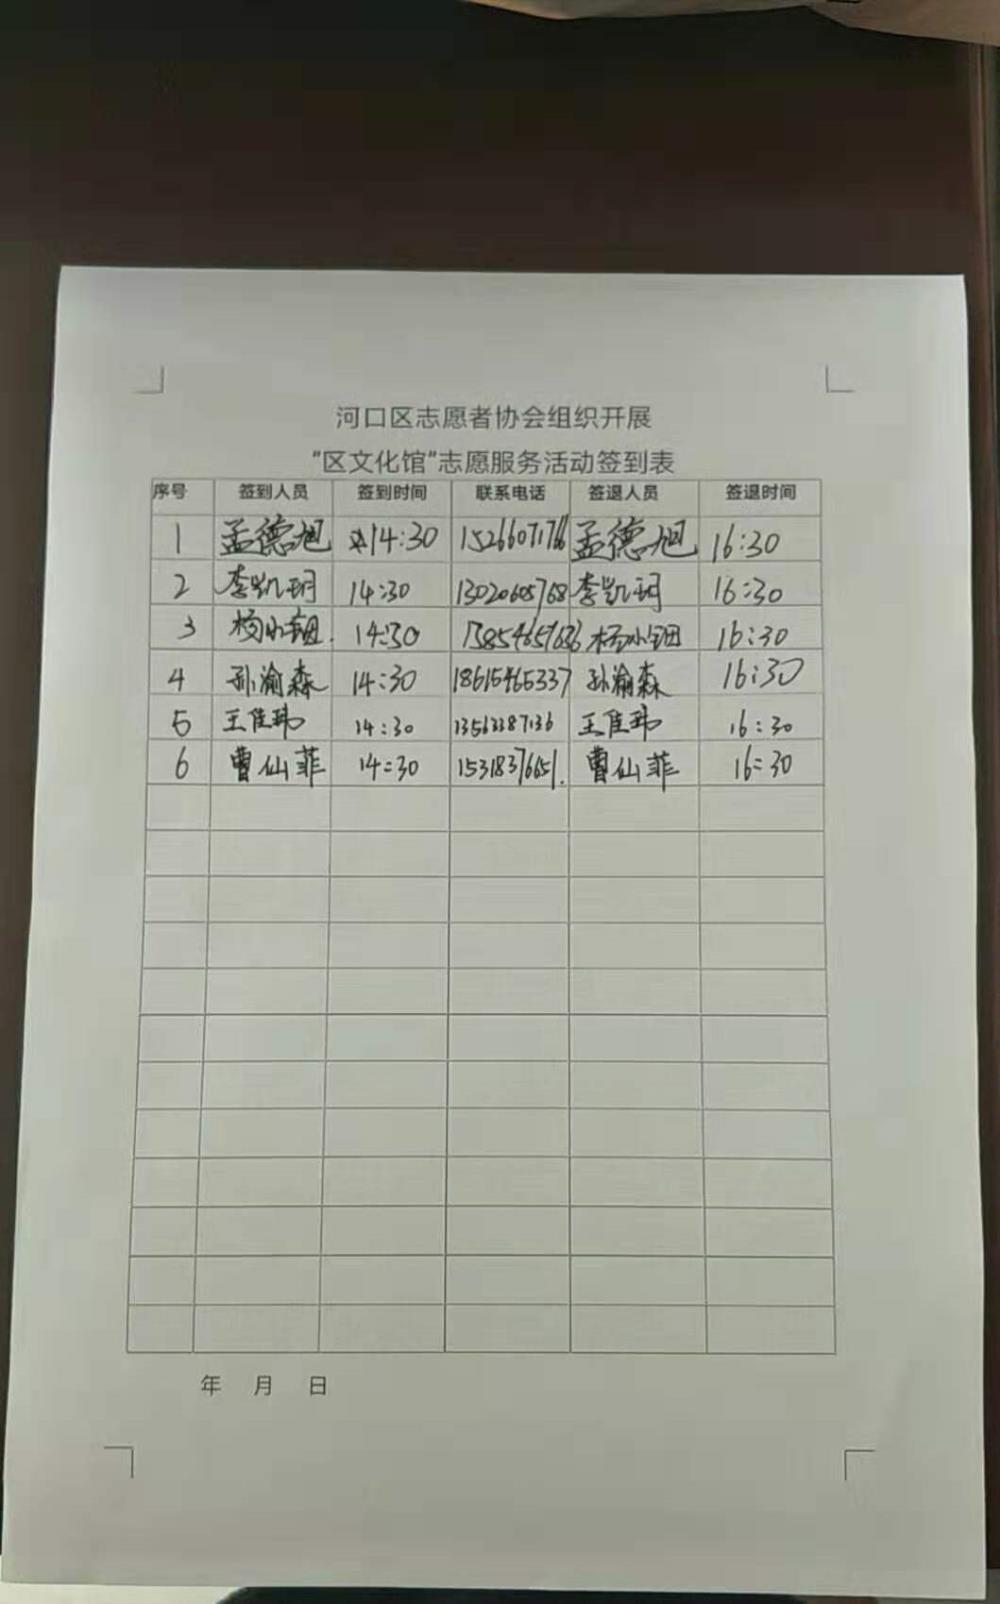 河口区志愿者协会组织开展
“区文化馆”志愿服务活动签到表
序号 签到人员 签到时间 联系电话 签退人员 签退时间
1 孟德旭 14:30 孟德旭 16:30
2 李凯玥 14:30 李凯玥 16:30
3 14:30 16:30
4 孙瀹森 14:30 18615465337 孙瀹森 16:30
5 王佳玮 14:30 王佳玮 16:30
6 曹仙菲 14:30 15318376651. 曹仙菲 16:30
年 月 日